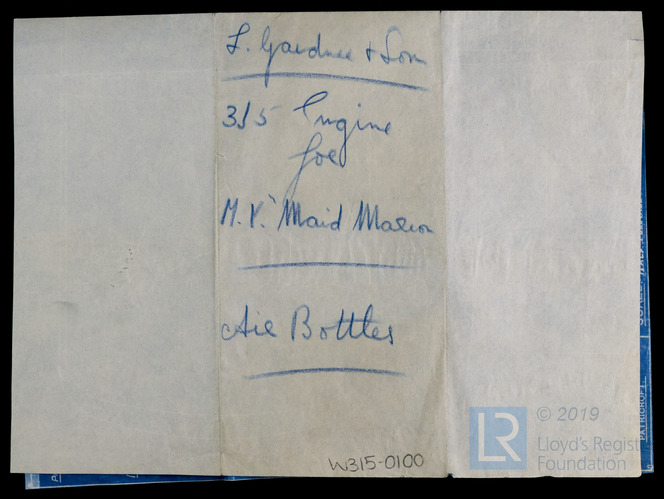 L. Gardner & Son
3J5 Engine
for
M.V. "Maid Marion
Air Bottles
W315-0100
LR © 2019
Lloyd's Regist
Foundation
PATRICROFT